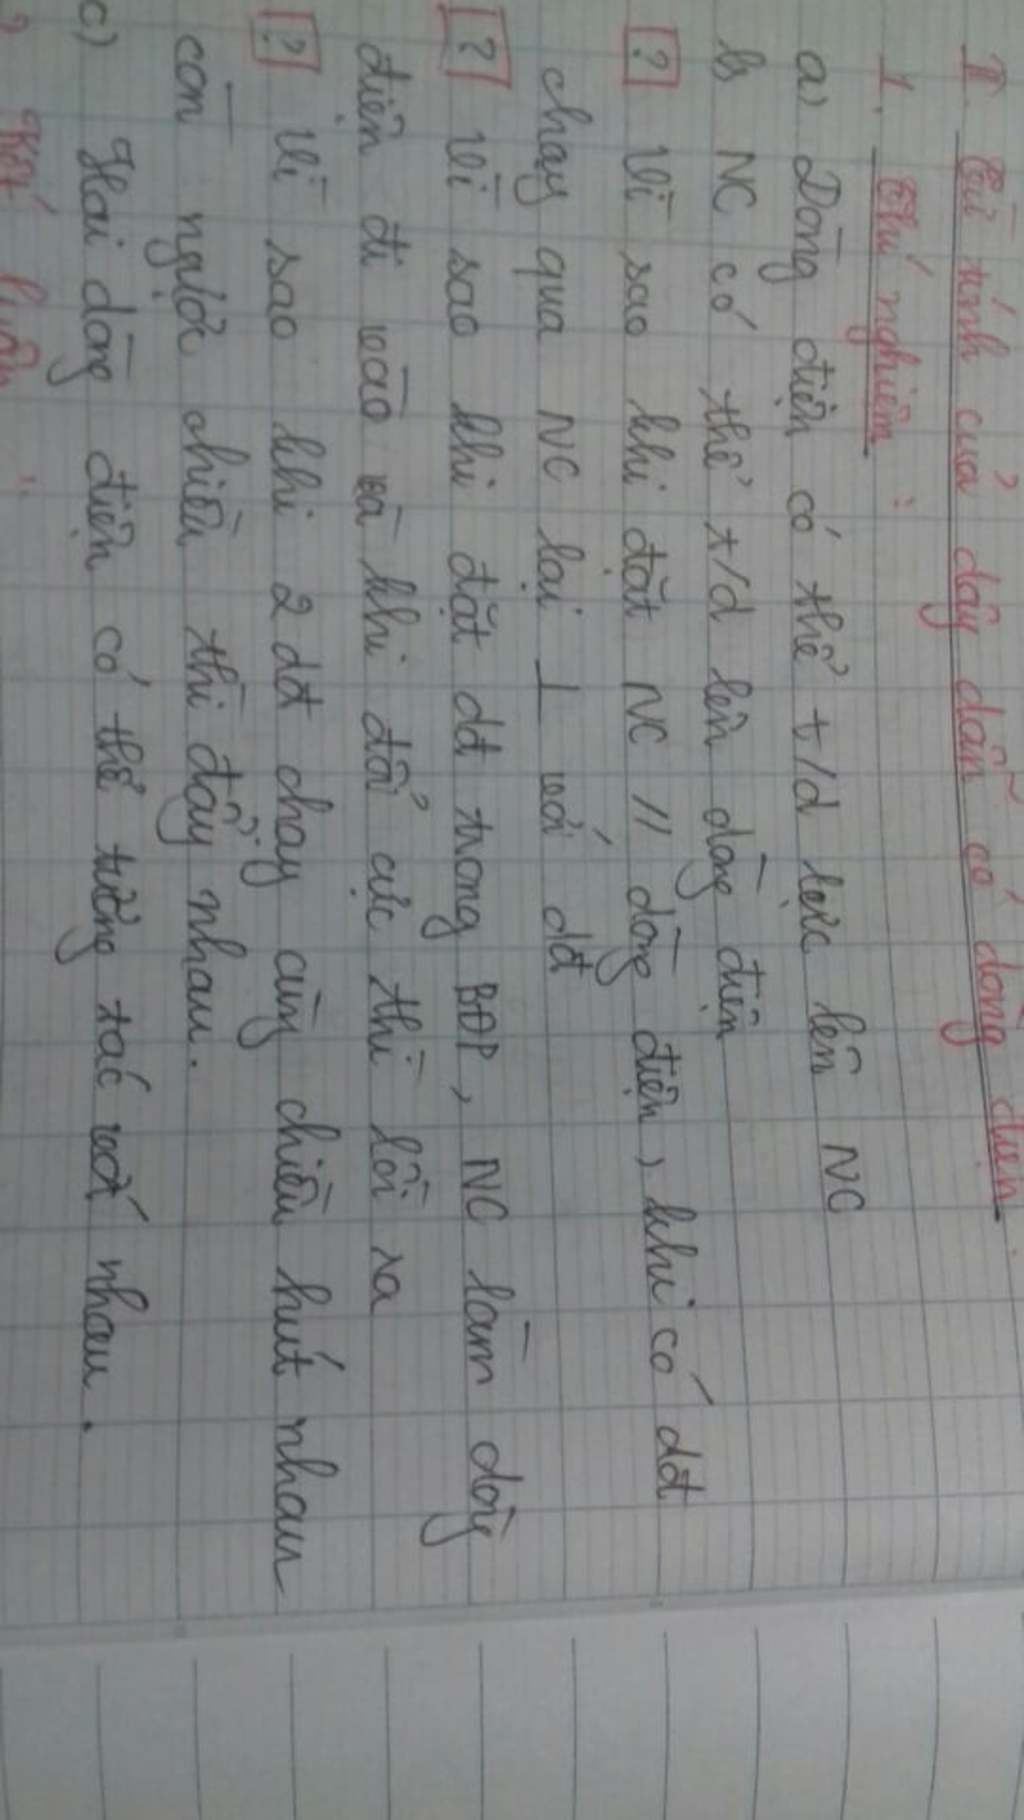 II. Từ tính của dây dẫn có dòng điện.
1. Thí nghiệm :
a) Dòng điện có thể t/d lực lên NC
b) NC có thể t/d lên dòng điện
? Vì sao khi đặt NC // dòng điện, khi có dđ
chạy qua NC lại ⊥ với dđ
? Vì sao khi đặt dđ trong BĐP, NC làm dòng
điện đi vào và khi đổi cực thì lồi ra
? Vì sao khi 2 dđ chạy cùng chiều hút nhau
còn ngược chiều thì đẩy nhau.
c) Hai dòng điện có thể tương tác với nhau.
2) Kết luận :